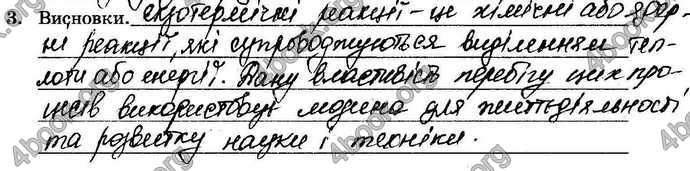 3. Висновки. екзотермічні реакції - це хімічні або ядер-
ні реакції, які супроводжуються виділенням теп-
лоти або енергії. Дану властивість перебігу цих про-
цесів використовує людина для життєдіяльності
та розвитку науки і техніки.
4book.org